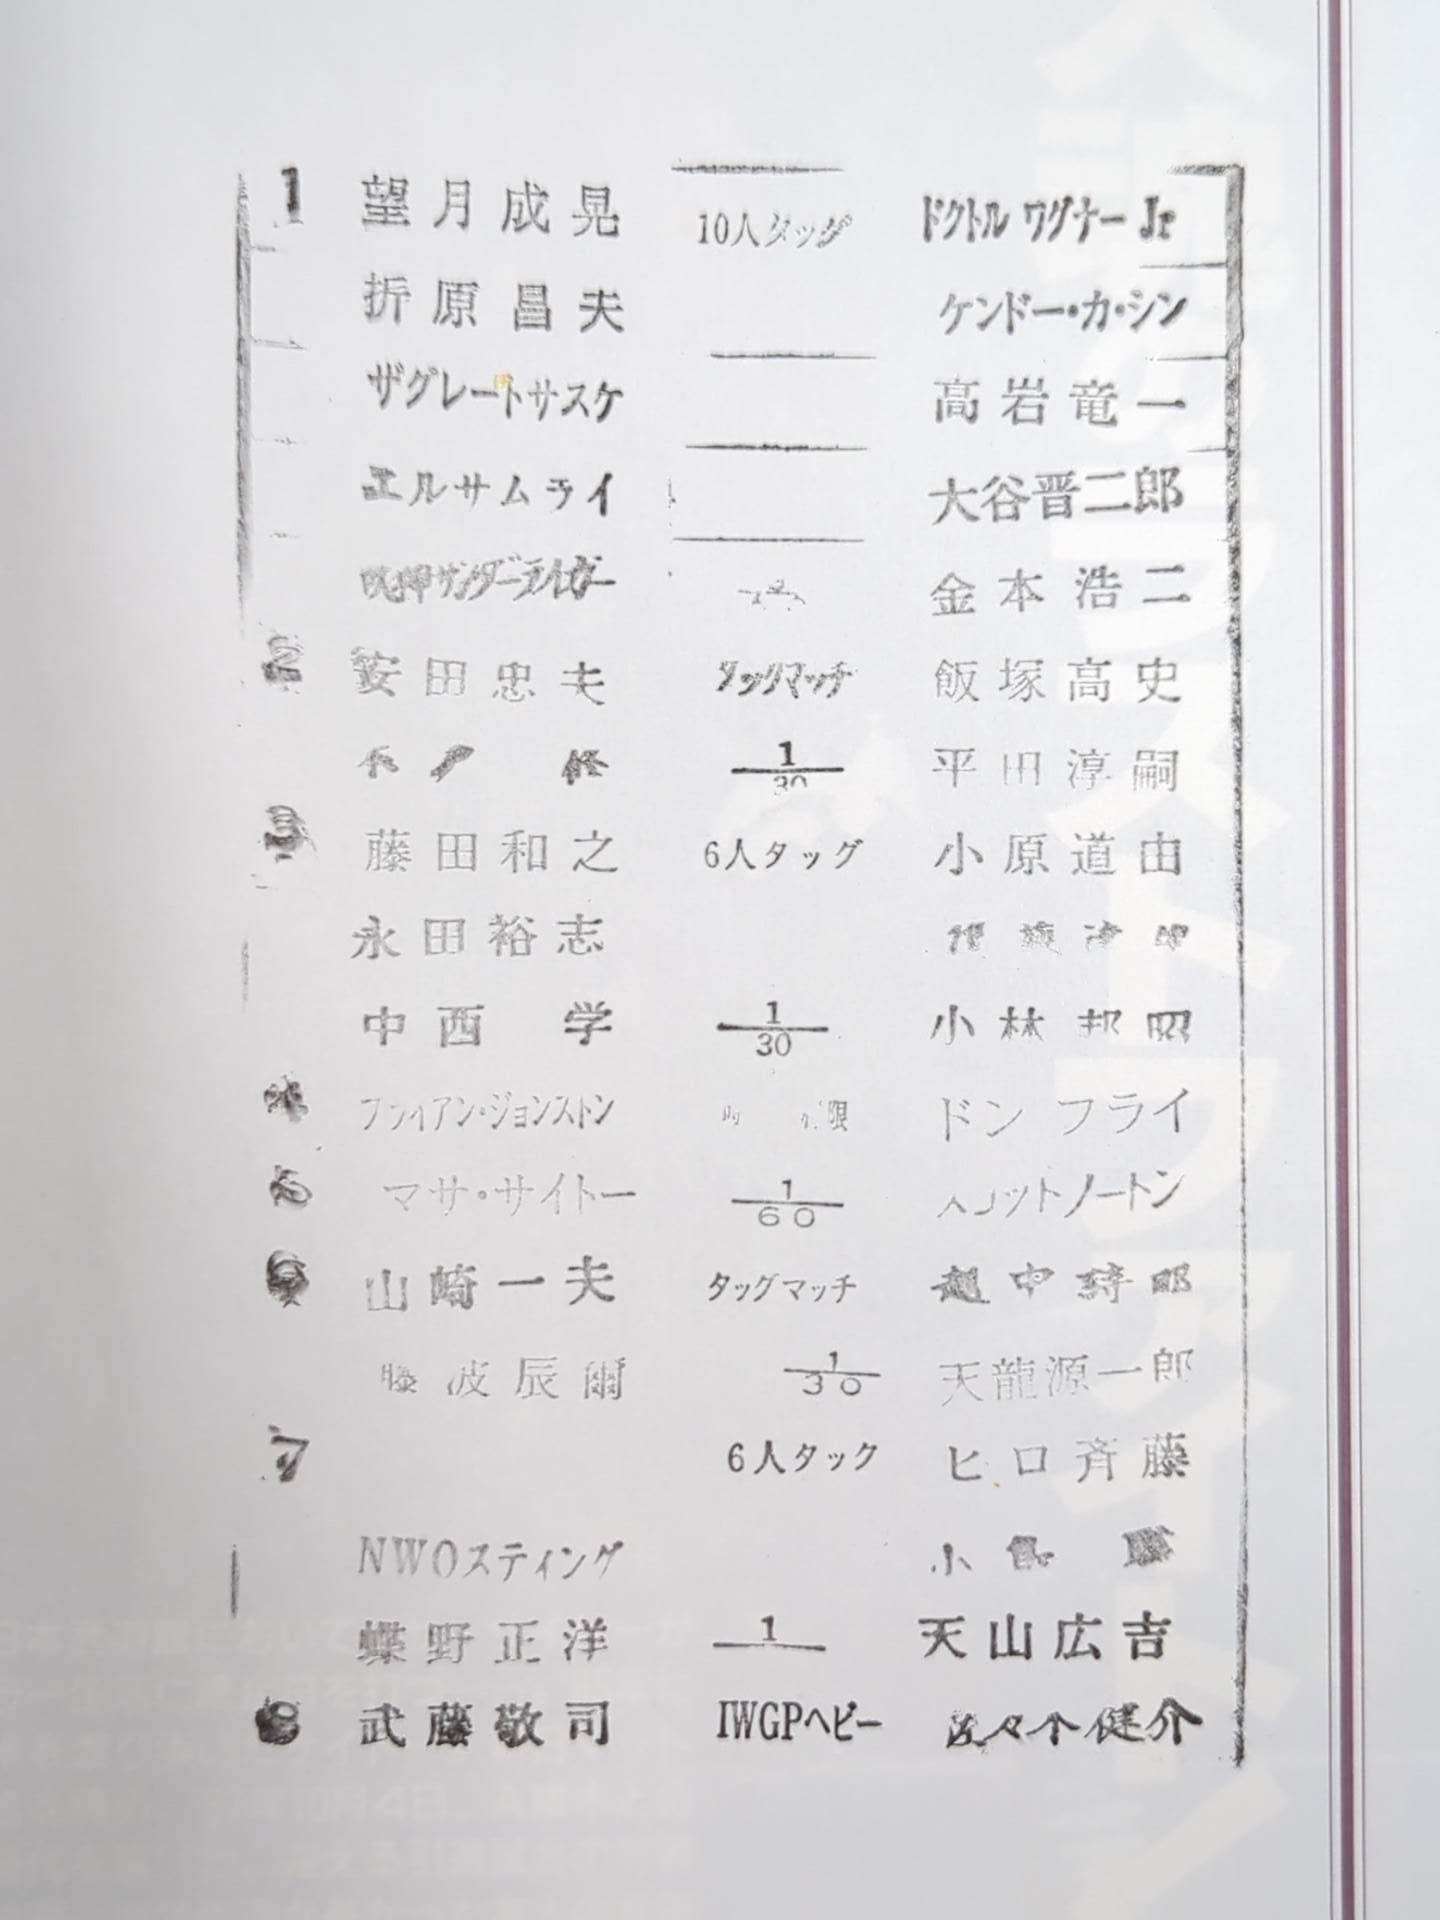 1 望月成晃 10人タッグ ドクトル ワグナー Jr
折原昌夫 ケンドー・カ・シン
ザグレートサスケ 高岩竜一
エルサムライ 大谷晋二郎
サンダーライガー 金本浩二
2 安田忠夫 タッグマッチ 飯塚高史
1/30 平田淳嗣
3 藤田和之 6人タッグ 小原道由
永田裕志
中西学 1/30 小林邦昭
ブライアン・ジョンストン ドン フライ
マサ・サイトー 1/60 スコットノートン
山崎一夫 タッグマッチ 越中詩郎
藤波辰爾 1/30 天龍源一郎
7 6人タック ヒロ斉藤
NWOスティング 小
蝶野正洋 1 天山広吉
8 武藤敬司 IWGPヘビー 佐々木健介